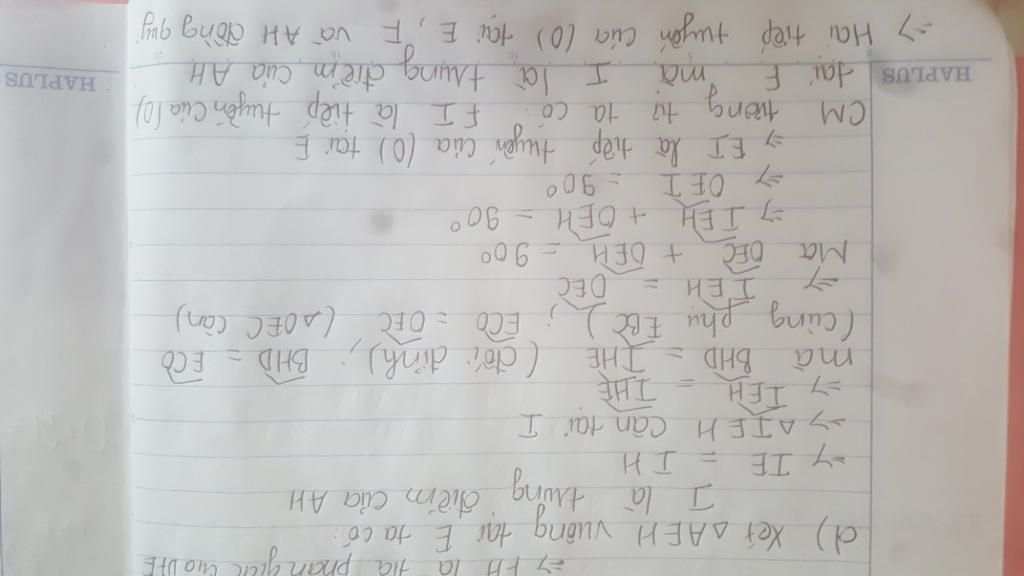 ⇒ FH là tia phân giác của DFE
d) Xét △AEH vuông tại E ta có:
I là trung điểm của AH
⇒ IE = IH
⇒ △IEH cân tại I
⇒ IEH = IHE
mà BHD = IHE (đối đỉnh); BHD = ECO
(cùng phụ EBC); ECO = OEC (△OEC cân)
⇒ IEH = OEC
Mà OEC + OEH = 90°
⇒ IEH + OEH = 90°
⇒ OEI = 90°
⇒ EI là tiếp tuyến của (O) tại E
CM tương tự ta có: FI là tiếp tuyến của (O)
tại F mà I là trung điểm của AH
⇒ Hai tiếp tuyến của (O) tại E, F và AH đồng quy
HAPLUS
HAPLUS